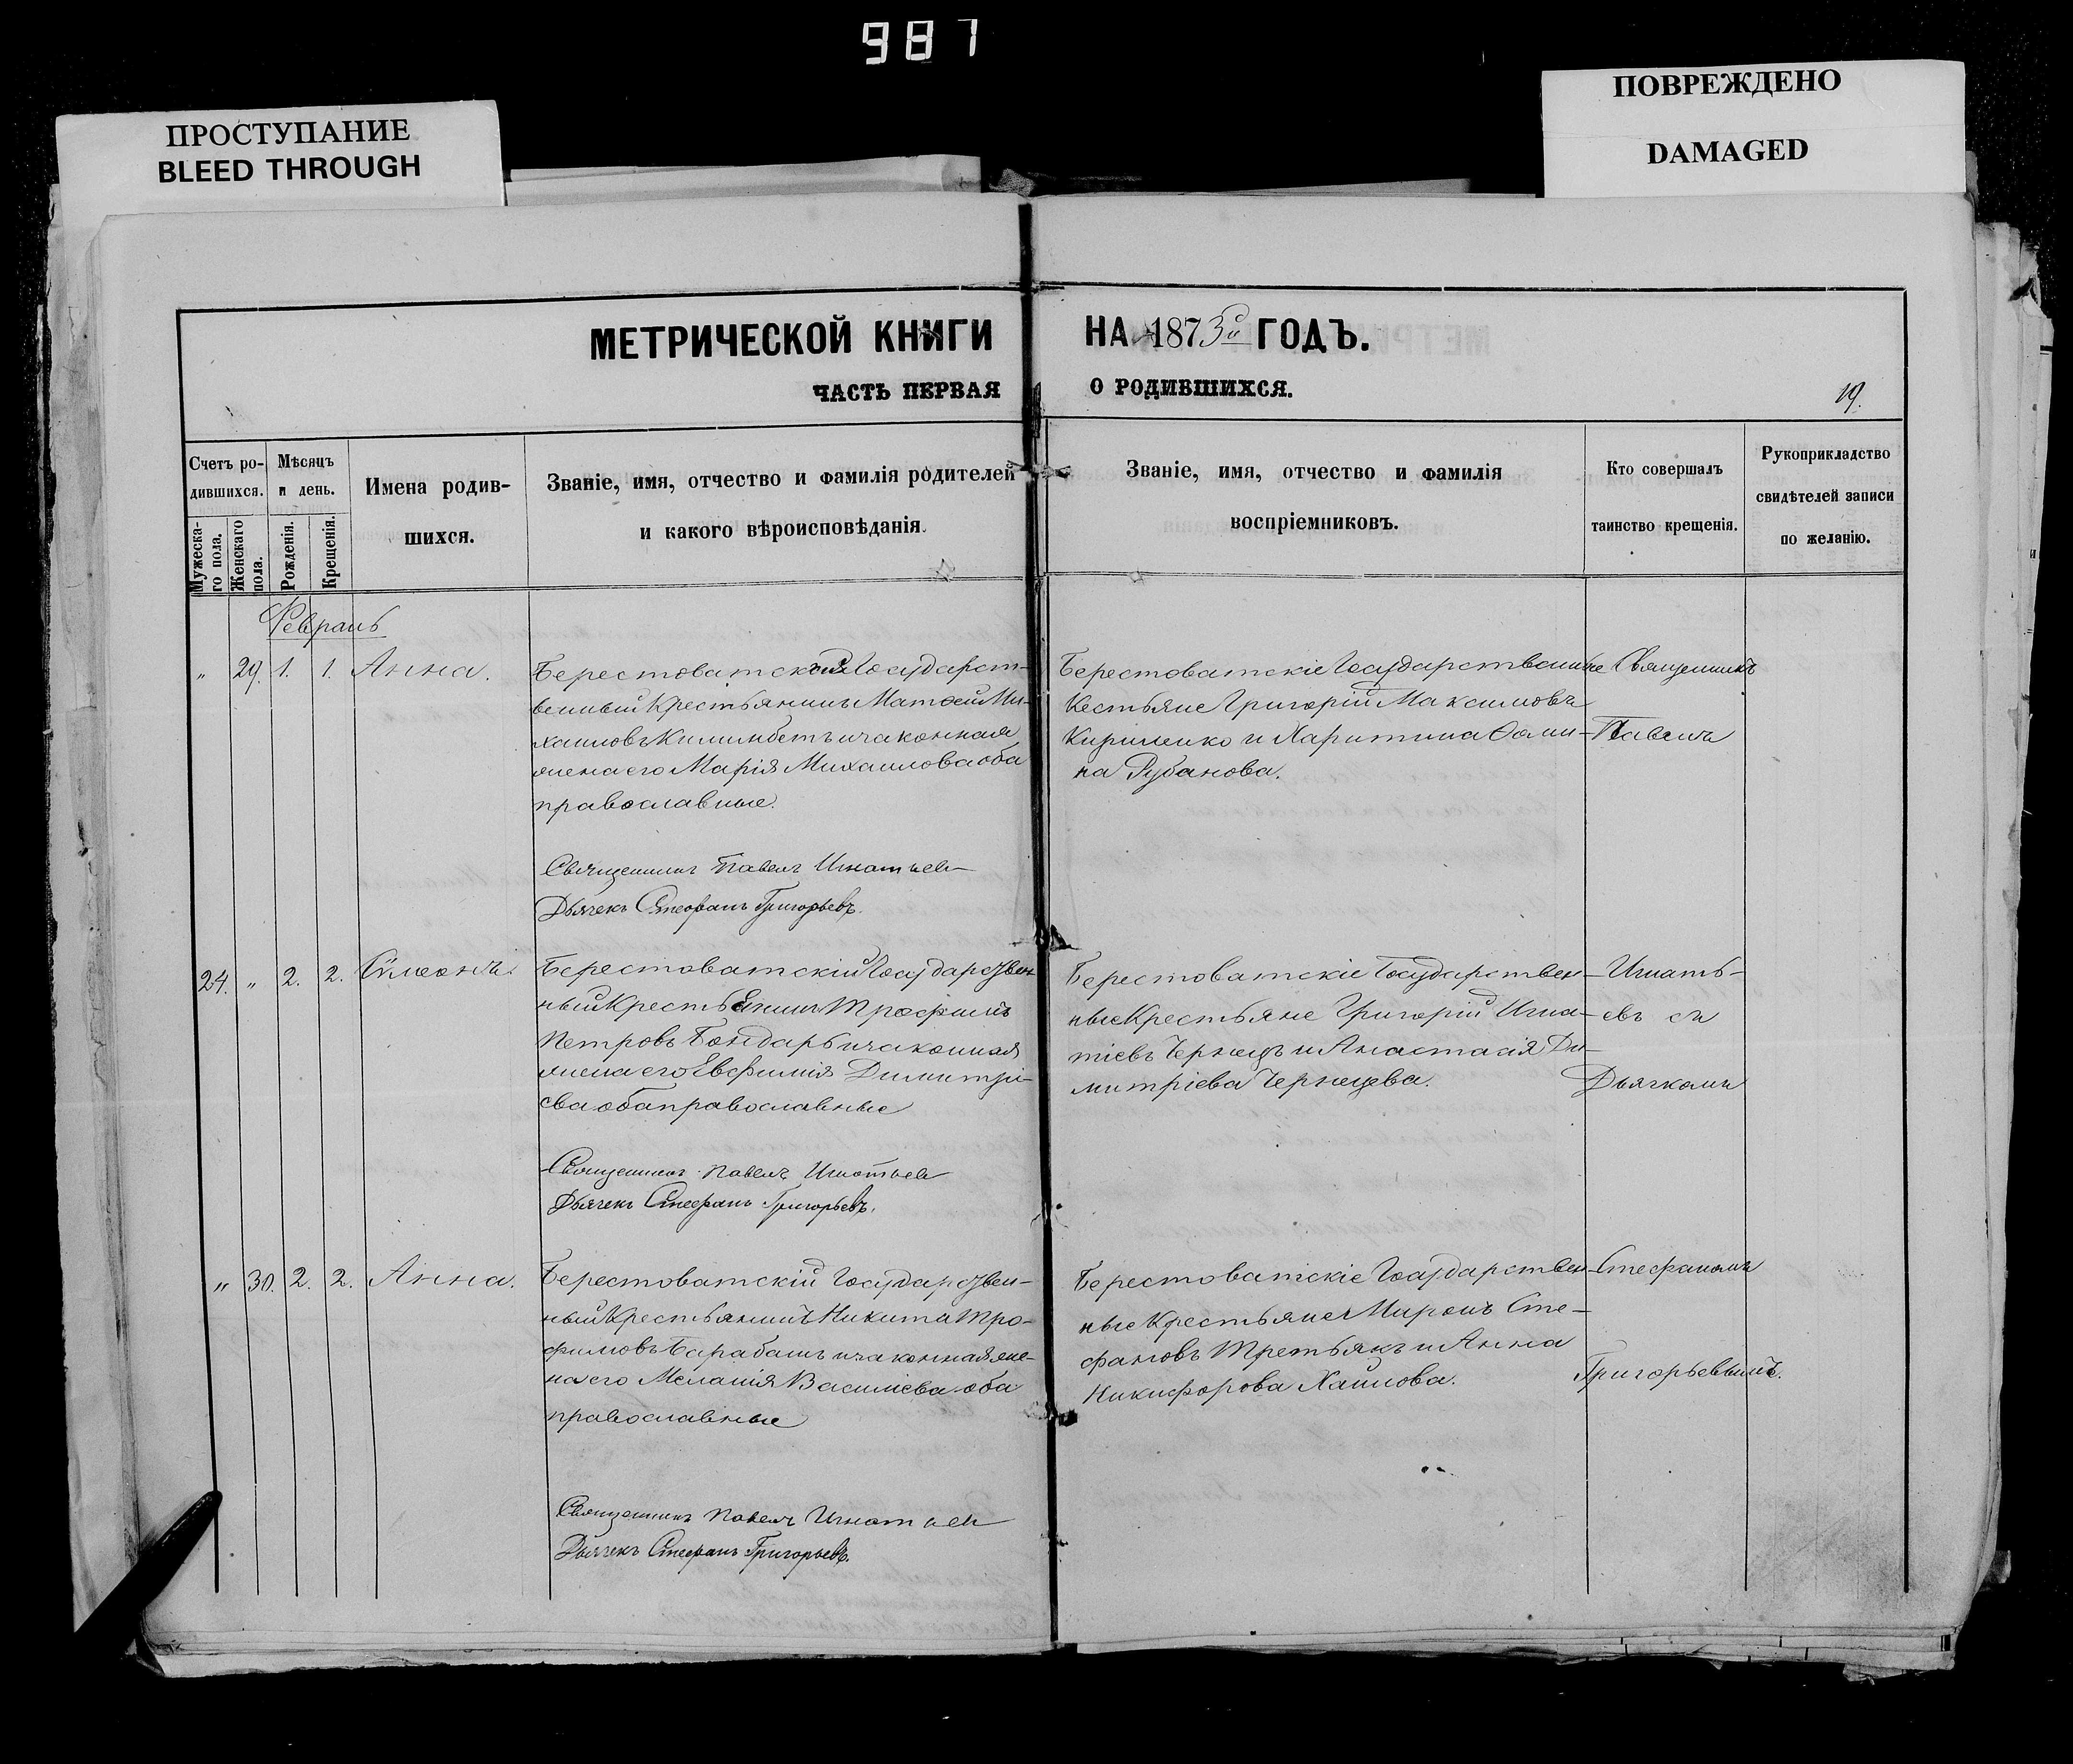 987
ПРОСТУПАНИЕ
BLEED THROUGH
ПОВРЕЖДЕНО
DAMAGED
МЕТРИЧЕСКОЙ КНИГИ НА 1873й ГОДЪ.
ЧАСТЬ ПЕРВАЯ О РОДИВШИХСЯ.
19.
Счетъ ро-
дившихся.
Мужеска-
го пола.
Женскаго
пола.
Мѣсяцъ
и день.
Рожденія.
Крещенія.
Имена родив-
шихся.
Званіе, имя, отчество и фамилія родителей
и какого вѣроисповѣданія.
Званіе, имя, отчество и фамилія
воспріемниковъ.
Кто совершалъ
таинство крещенія.
Рукоприкладство
свидѣтелей записи
по желанію.
Февраль
" 29. 1. 1. Анна.
Берестоватскій Государст-
венный Крестьянинъ Матѳей Ми-
хаиловъ и законная
жена его Марія Михаилова оба
православные.
Священникъ Павелъ Игнатьев
Дьячекъ Стефанъ Григорьевъ.
Берестоватскіе Государственные
Кестьяне Григорій Максимовъ
Кириленко и Харитина Ѳоми-
на Рубанова.
24. " 2. 2. Сѵмеонъ.
Берестоватскій Государствен
ный Крестьянинъ Трофимъ
Петровъ Бондарь и законная
жена его Евфимія Димитрі-
ева оба православные
Священникъ Павелъ Игнатьев
Дьячекъ Стефанъ Григорьевъ.
Берестоватскіе Государствен-
ные Крестьяне Григорій Игна-
тіевъ Чернецъ и Анастасія Ди-
митріева Чернецева.
" 30. 2. 2. Анна.
Берестоватскій Государствен-
ный Крестьянинъ Никита Тро-
фимовъ Барабашъ и законная же-
на его Меланія Василіева оба
православные
Священникъ Павелъ Игнатьев
Дьячекъ Стефанъ Григорьевъ.
Берестоватскіе Государствен-
ные Крестьяне Миронъ Сте-
фановъ Третьякъ и Анна
Никифорова Хаилова.
Священникъ
Павелъ
Игнать-
евъ съ
Дьячкомъ
Стефаномъ
Григорьевымъ.